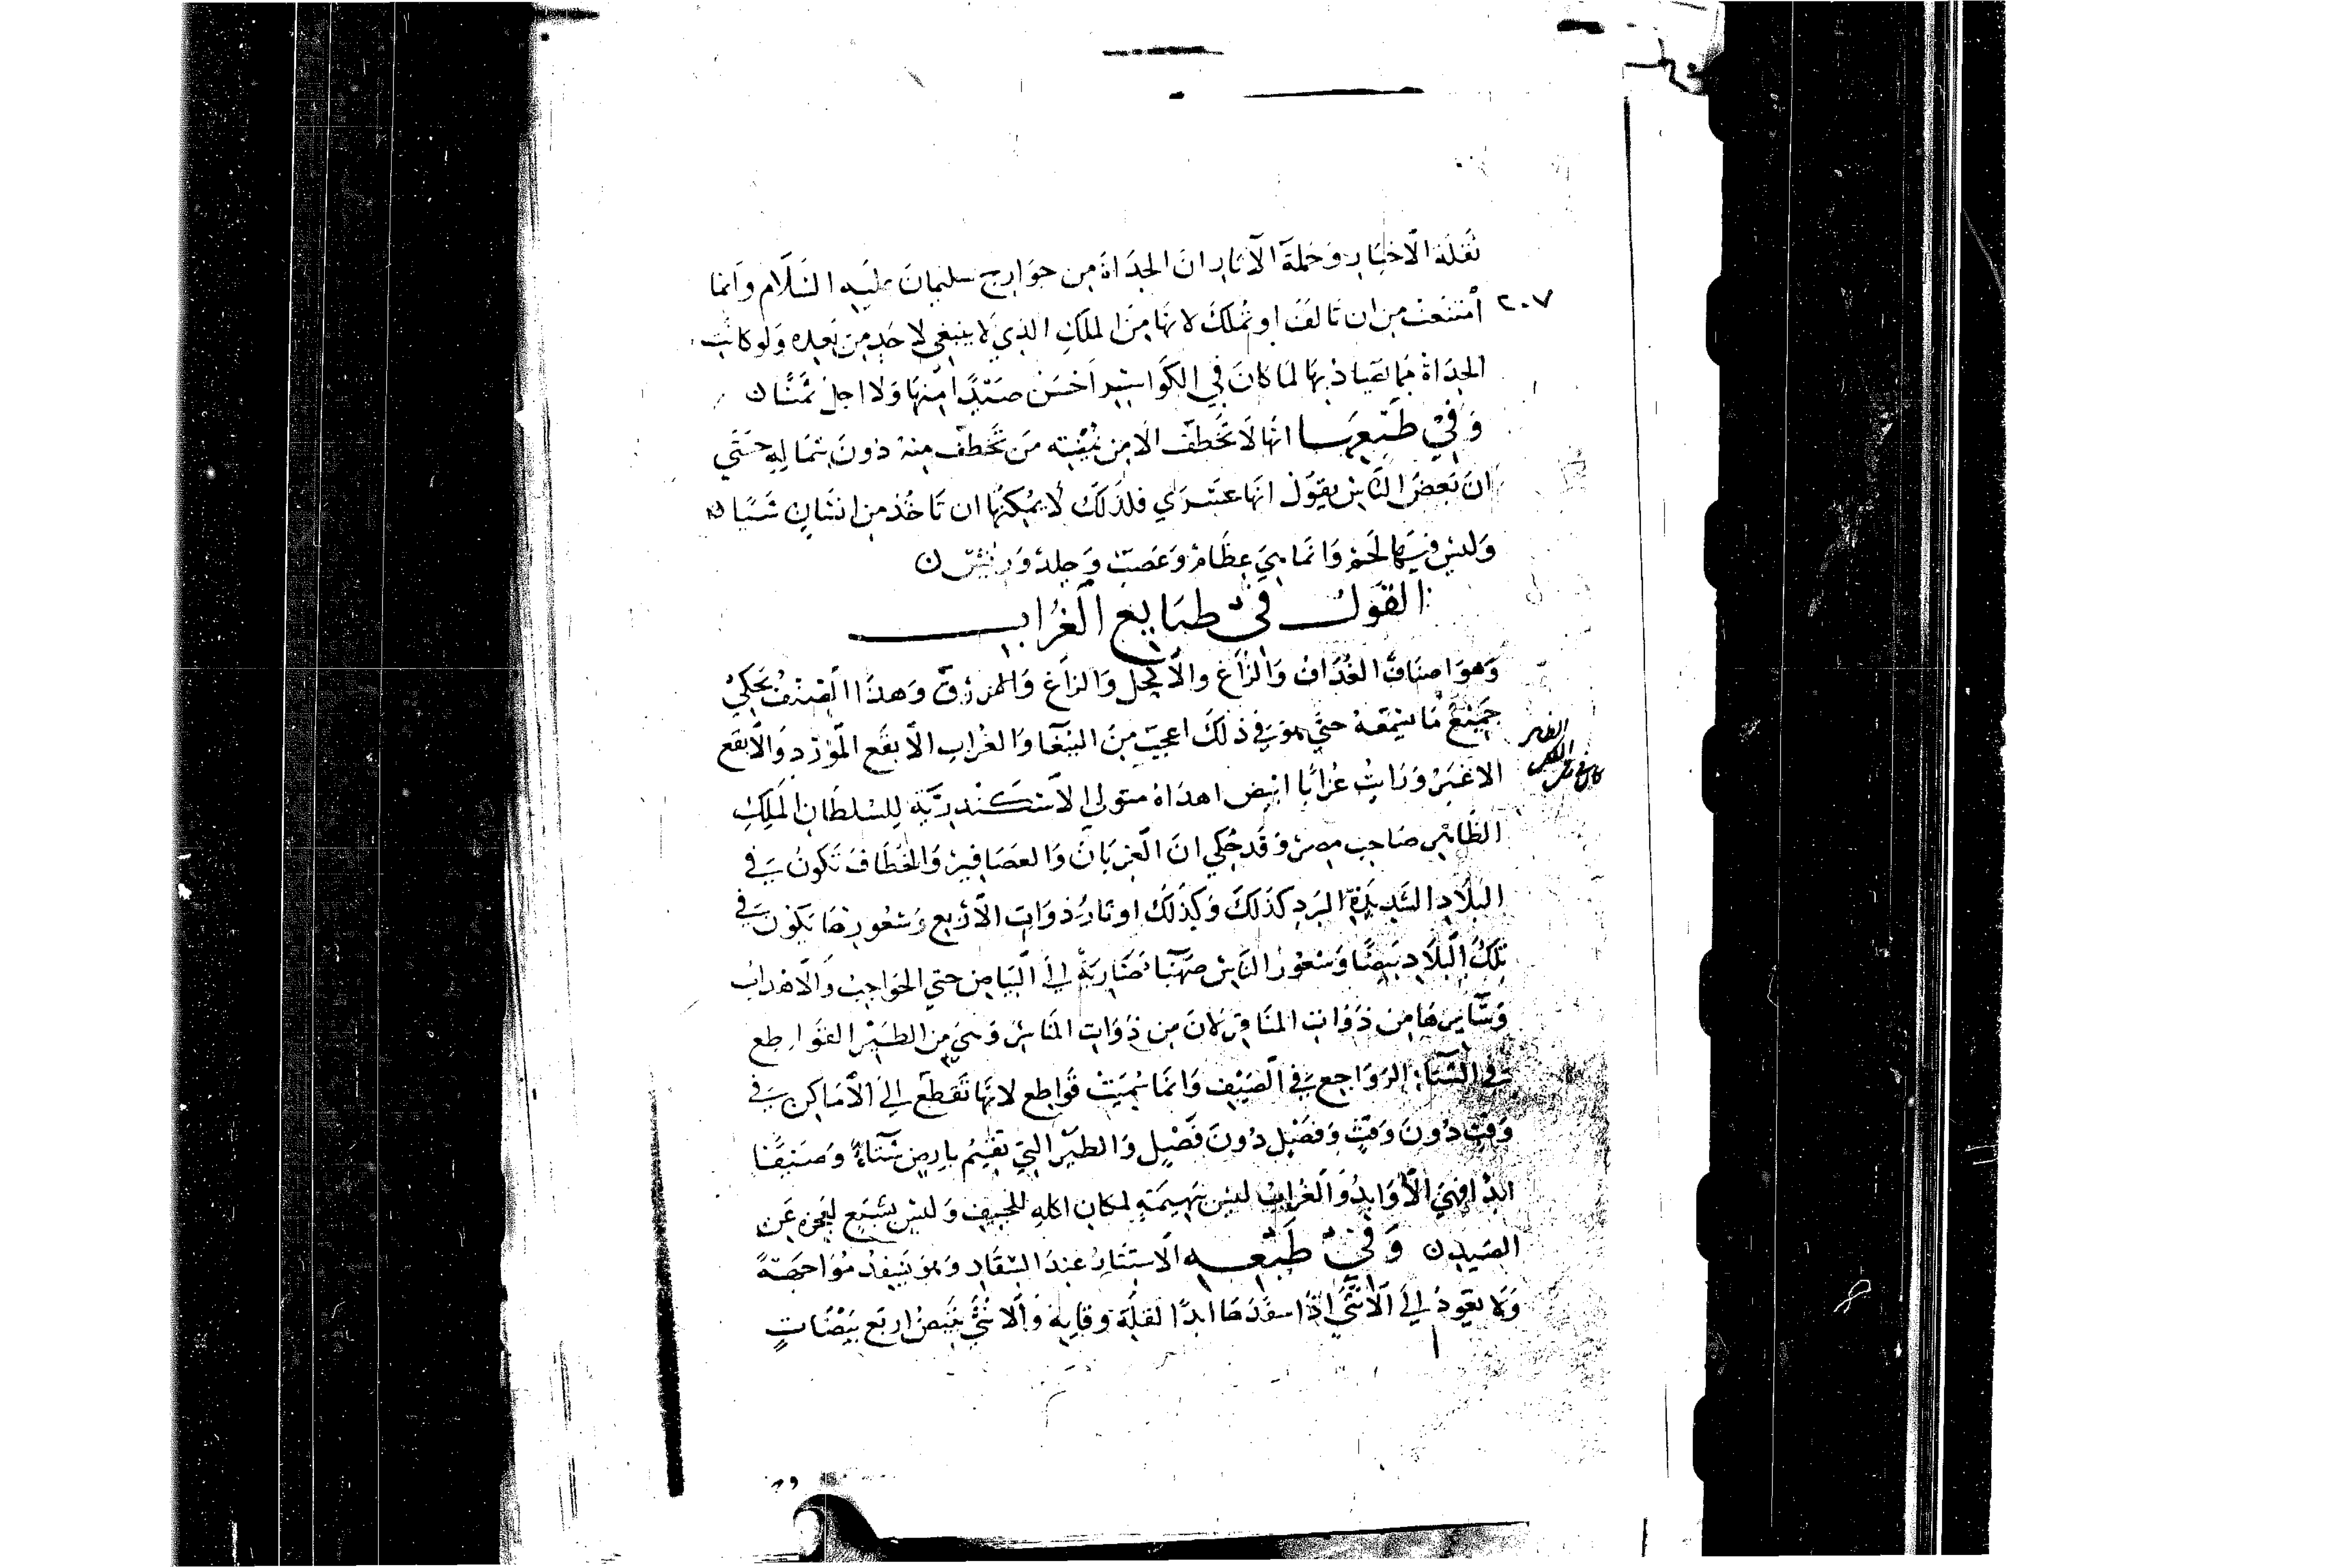 نقلة الاخبار وحملة الآثار ان الحداة من جوارح سليمان عليه السلام وانما
٢٠٧
امتنعت من ان تالف او تملك لانها من الملك الذي لا ينبغي لاحد من بعده ولو كانت
الحداة مما يصاد بها لما كان في الكواسر احسن صيدا منها ولا اجل ثمنا
وفي طبعها انها لا تخطف الا من يمنة من تخطف منه دون شماله حتى
ان بعض الناس يقول انها عسرى فلذلك لا يمكنها ان تاخذ من انسان شيا
وليس فيها لحم وانما هي عظام وعصب وجلد وريش
القول في طبايع الغراب
وهو اصناف الغداف والزاغ والاكحل والزاغ والمورق وهذا الصنف يحكي
جميع ما يسمعه حتى هو في ذلك اعجب من الببغا والغراب الابقع المورد والابقع
الاغبر ورايت غرابا ابيض اهداه متولي الاسكندرية للسلطان الملك
الظاهر صاحب مصر وقد حكي ان الغربان والعصافير والخطاف تكون في
البلاد الشديدة البرد كذلك وكذلك اوبار ذوات الاربع وشعورها يكون في
تلك البلاد بيضا وشعور الناس صهبا ضاربة الى البياض حتى الحواجب والاهداب
وسايرها من ذوات المناقر لا من ذوات المناسر وهي من الطير القواطع
في الشتا الرواجع في الصيف وانما سميت قواطع لانها تقطع الى الاماكن في
وقت دون وقت وفصل دون فصل والطير التي تقيم بارض شتاء وصيفا
ابدا فهي الاوابد والغراب ليس بهيمة لمكان اكله للجيف وليس بسبع لعجزه عن
الصيد وفي طبعه الاستتار عند السفاد وهو يسفد مواجهة
ولا يعود الى الانثى اذا سفدها ابدا لقلة وفايه والانثى تبيض اربع بيضات